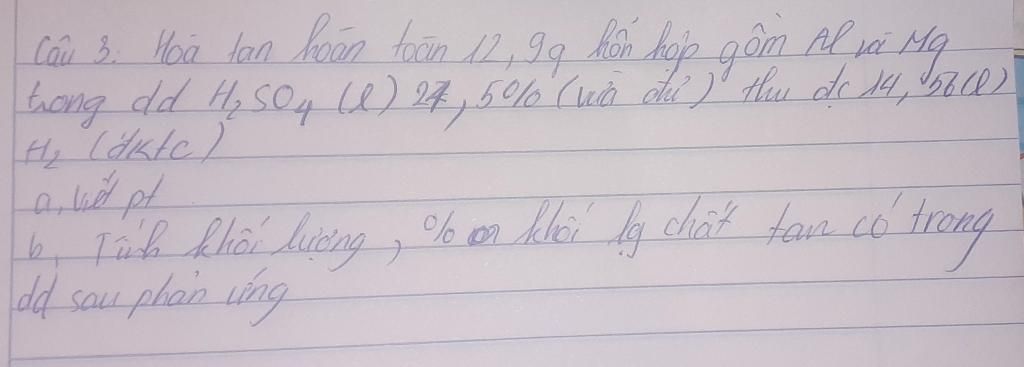 Câu 3: Hoà tan hoàn toàn 12,9g hỗn hợp gồm Al và Mg
trong dd H₂SO₄ (l) 24,5% (vừa đủ) thu đc 14,56(l)
H₂ (đktc)
a, Viết pt
b, Tính khối lượng, % khối lg chất tan có trong
dd sau phản ứng